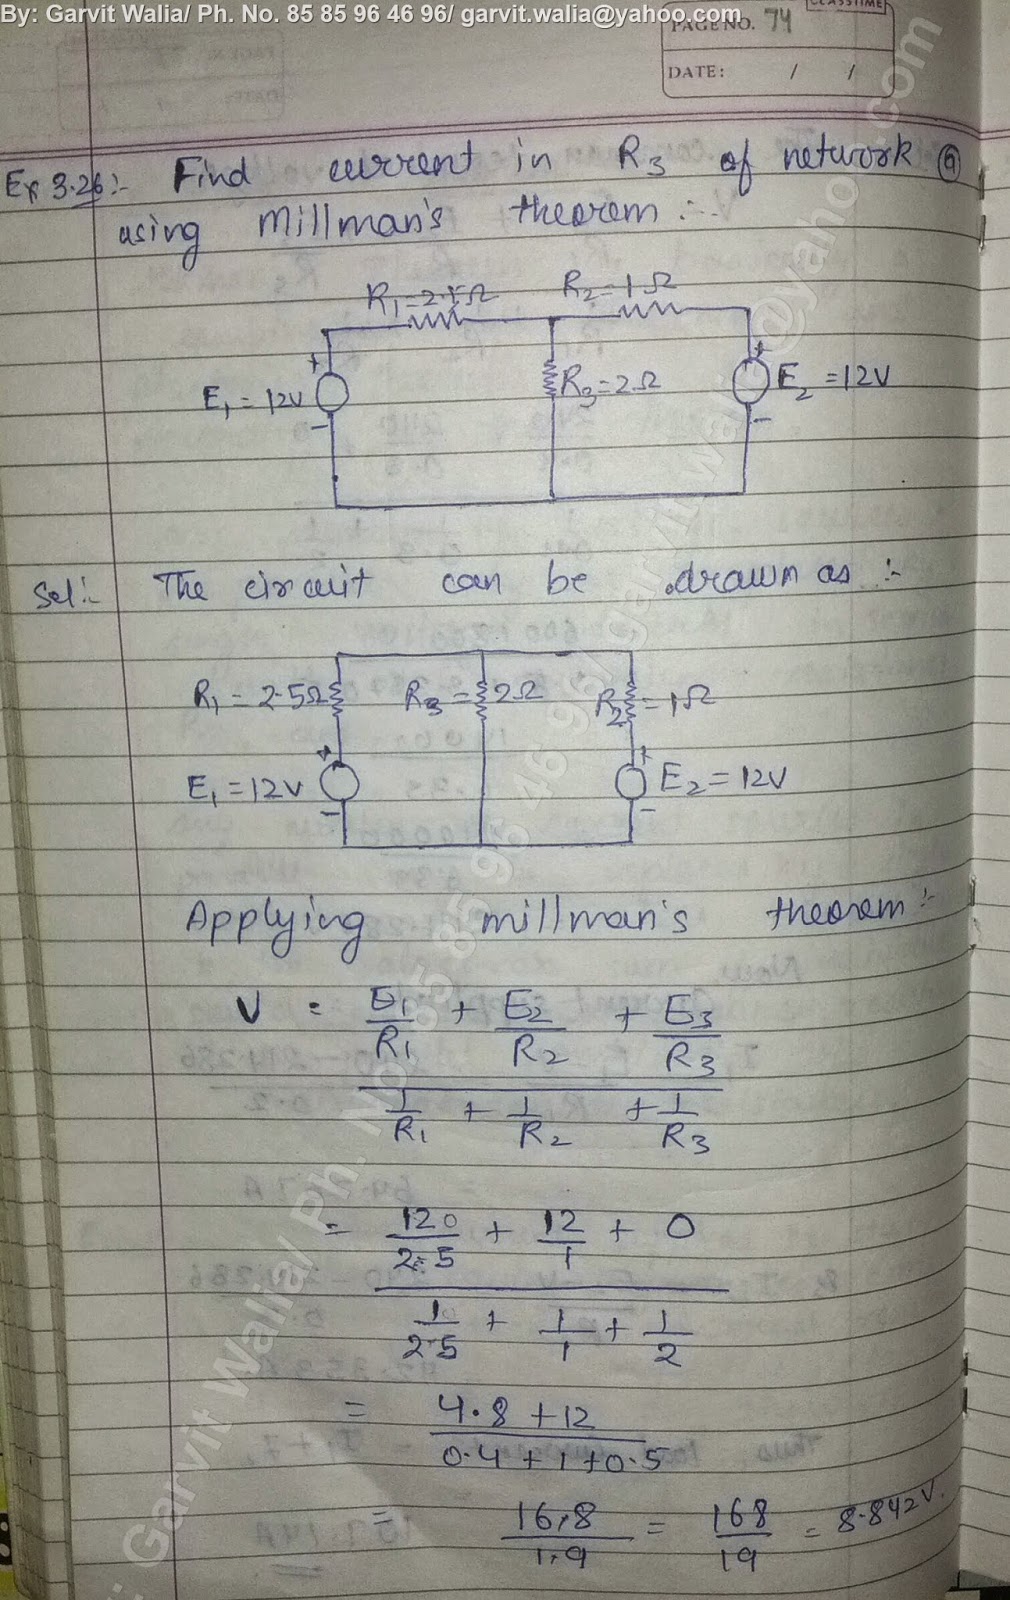 By: Garvit Walia/ Ph. No. 85 85 96 46 96/ garvit.walia@yahoo.com
CLASSTIME
PAGE NO. 74
DATE: / /
Ex 3.26:- Find current in R3 of network
using Millman's theorem :-
R1=2.5Ω R2=1Ω
E1 = 12V R3=2Ω E2 = 12V
+ + - -
Sol:- The circuit can be drawn as :-
R1 = 2.5Ω R3 = 2Ω R2 = 1Ω
E1 = 12V E2 = 12V
+ + - -
Applying millman's theorem :-
V = E1/R1 + E2/R2 + E3/R3
1/R1 + 1/R2 + 1/R3
= 120/2.5 + 12/1 + 0
10/2.5 + 1/1 + 1/2
= 4.8 + 12
0.4 + 1 + 0.5
= 16.8/1.9 = 168/19 = 8.842V.